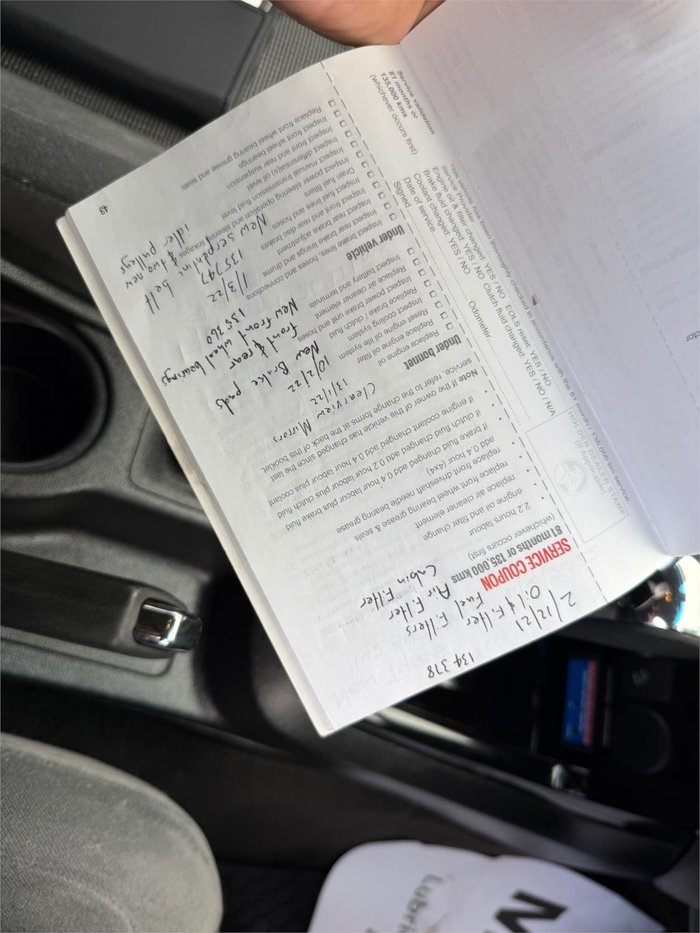 134 378
2/12/21
Oil & Filter
Fuel Filters
Air Filter
Cabin Filter
SERVICE COUPON
81 months or 135,000 kms
(whichever occurs first)
2.2 hours labour
engine oil and filter change
air cleaner element
replace front wheel bearing grease & seals
replace front driveshaft needle bearing grease
add 0.4 hour (4x4)
If brake fluid changed add 0.4 hour labour plus brake fluid
If clutch fluid changed add 0.2 hour labour plus clutch fluid
If engine coolant changed add 0.4 hour labour plus coolant
Note: If the owner of this vehicle has changed since the last
service, refer to the change of owner forms at the back of this booklet.
Clearview Mirrors
13/1/22
10/2/22
New Brake pads
front & rear
New front wheel bearings
135 360
1/3/22
135747
New serpentine belt
& two new
idler pulleys
Under bonnet
Replace engine oil
Replace engine oil filter
Reset engine oil life system
Inspect cooling system
Inspect power brake / clutch fluid
Replace air cleaner element
Inspect battery and terminals
Under vehicle
Inspect brake lines, hoses and connections
Inspect rear brake linings and drums
Inspect front disc brakes
Inspect fuel lines and hoses
Drain fuel filters
Inspect differential(s) oil level
Inspect front and rear suspension
Inspect front wheel bearings
Replace front wheel bearing grease and seals
43
Service validation
81 months or
135,000 kms
(whichever occurs first)
This vehicle has been thoroughly checked in accordance with the 81 month / 135,000 km service
Service Provider
Engine oil & filter changed: YES / NO EOLS reset: YES / NO
Brake fluid changed: YES / NO Clutch fluid changed: YES / NO / N/A
Coolant changed: YES / NO
Date of service
Odometer
Signed
DEALER STAMP